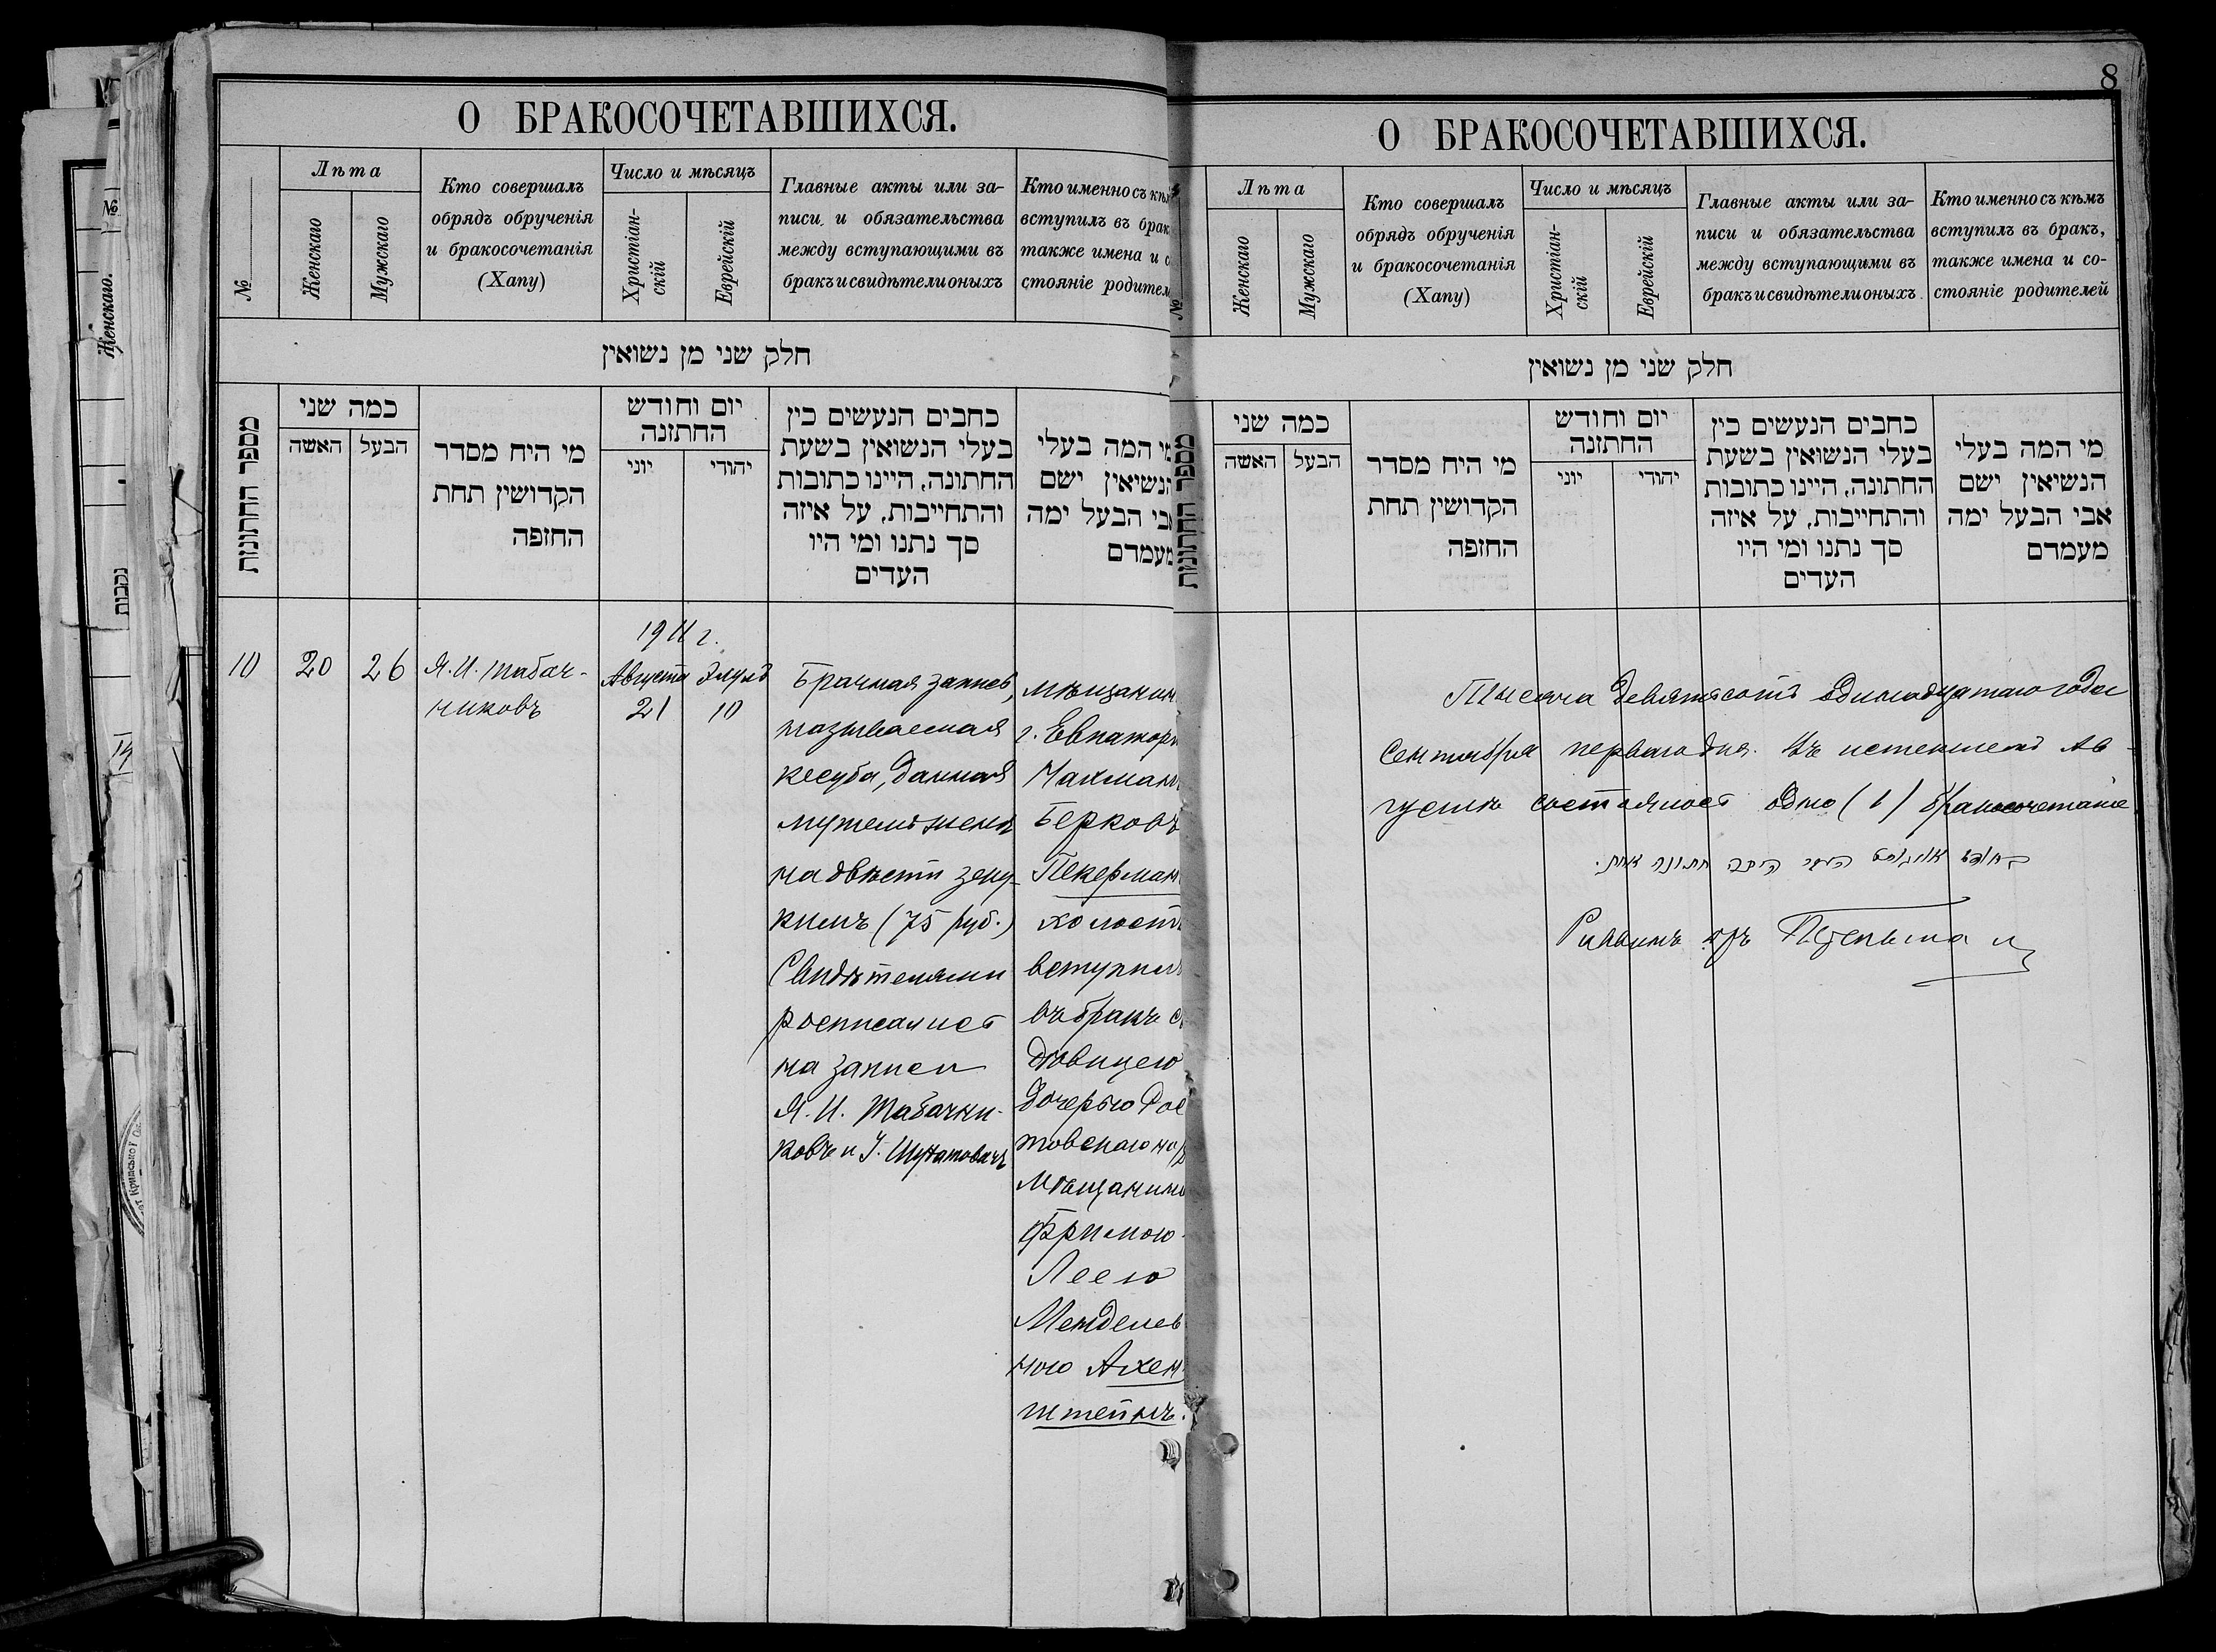 О БРАКОСОЧЕТАВШИХСЯ.
№
Лѣта
Женскаго
Мужскаго
Кто совершалъ
обрядъ обрученія
и бракосочетанія
(Хапу)
Число и мѣсяцъ
Христіан-
скій
Еврейскій
Главные акты или за-
писи и обязательства
между вступающими въ
бракъ и свидѣтели оныхъ
Кто именно съ кѣм
вступилъ въ брак
также имена и с
стояніе родител
חלק שני מן נשואין
מספר החתונות
כמה שני
האשה הבעל
מי היח מסדר
הקדושין תחת
החזפה
יום וחודש
החתזנה
יוני יהודי
כחבים הנעשים כין
בעלי הנשואין בשעת
החתונה, היינו כתובות
והתחייבות, על איזה
סך נתנו ומי היו
העדים
מי המה בעלי
הנשיאין ישם
אבי הבעל ימה
מעמדם
10
20
26
Я. И. Табач-
никовъ
1911 г.
Августа
21
Элулъ
10
Брачная запись,
называемая
кесуба, данная
мужемъ женѣ
на двѣсти зеку-
кимъ (75 руб.)
Свидѣтелями
росписались
на записи
Я. И. Табачни-
ковъ и
Мѣщанин
г. Евпатори
Нахман
Берковъ
Пекерман
холостъ
вступилъ
въ бракъ съ
дѣвицею
дочерью Рос
товскаго н/Д
мѣщанина
Фримою-
Леею
Менделев
ною Ахен-
штейнъ.
8
О БРАКОСОЧЕТАВШИХСЯ.
№
Лѣта
Женскаго
Мужскаго
Кто совершалъ
обрядъ обрученія
и бракосочетанія
(Хапу)
Число и мѣсяцъ
Христіан-
скій
Еврейскій
Главные акты или за-
писи и обязательства
между вступающими въ
бракъ и свидѣтели оныхъ
Кто именно съ кѣмъ
вступилъ въ бракъ,
также имена и со-
стояніе родителей
חלק שני מן נשואין
מספר החתונות
כמה שני
האשה הבעל
מי היח מסדר
הקדושין תחת
החזפה
יום וחודש
החתזנה
יוני יהודי
כחבים הנעשים כין
בעלי הנשואין בשעת
החתונה, היינו כתובות
והתחייבות, על איזה
סך נתנו ומי היו
העדים
מי המה בעלי
הנשיאין ישם
אבי הבעל ימה
מעמדם
Тысяча девятьсотъ одинадцатаго года
Сентября перваго дня. Въ истекшемъ Ав-
густѣ состоялось одно (1) бракосочетаніе
בחודש אויגוסט היתה חתונה אחת.
Раввинъ
Женскаго.
נכבות
14